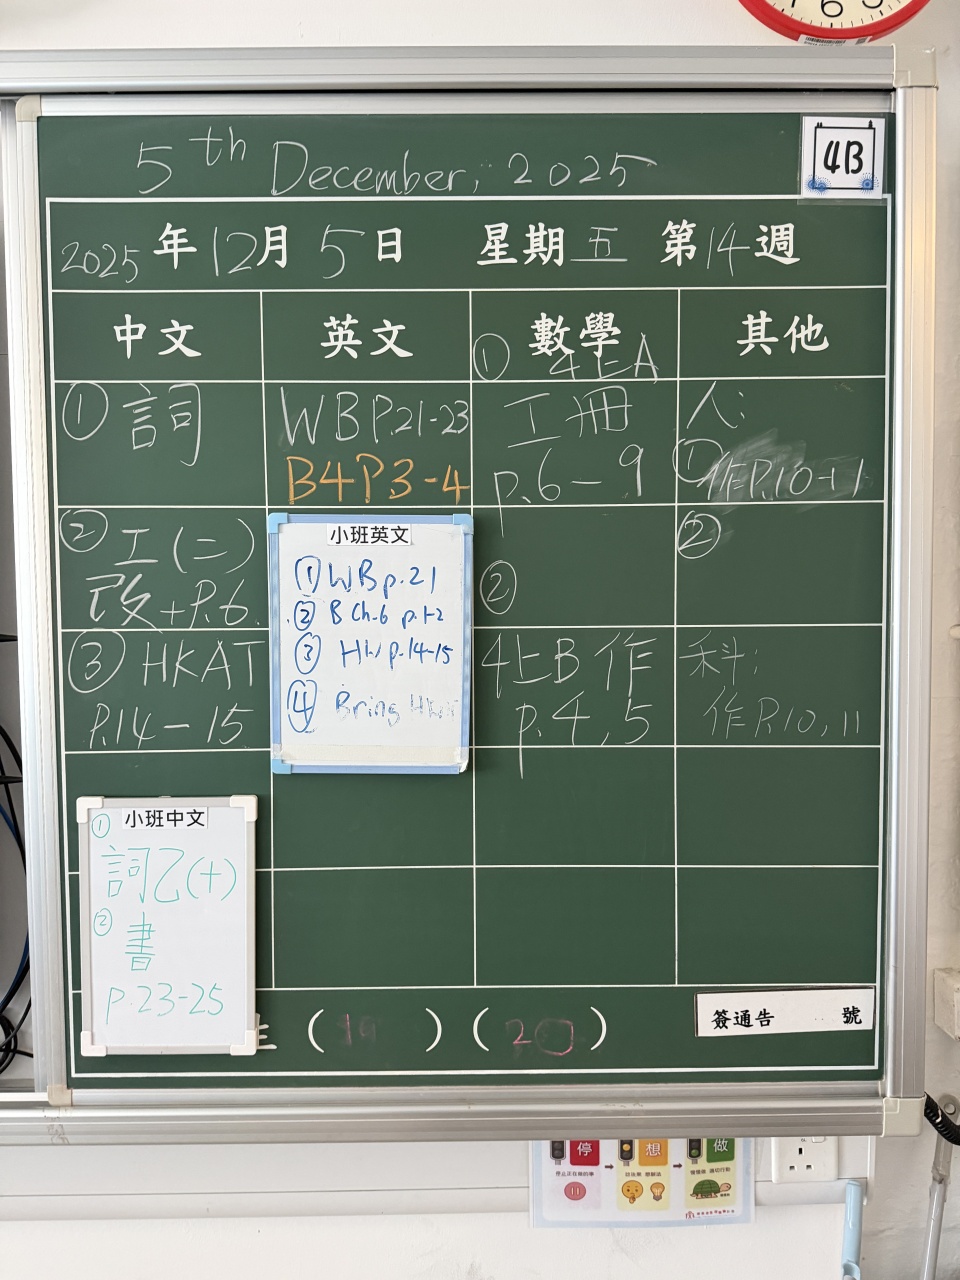 5th December, 2025
4B
2025年12月5日 星期五 第14週
中文 英文 數學 其他
① 詞
② 工(二)
改+P.6
③ HKAT
P.14-15
WB P.21-23
B4P3-4
小班英文
① WB p.21
② B Ch.6 p.1-2
③ HW p.14-15
④ Bring HW
① 4上A
工冊
p.6-9
②
4上B作
p.4,5
人:
① 作P.10-11
②
科:
作P.10,11
小班中文
①
詞乙(十)
②
書
p.23-25
(19)(20)
簽通告 號
停 想 做